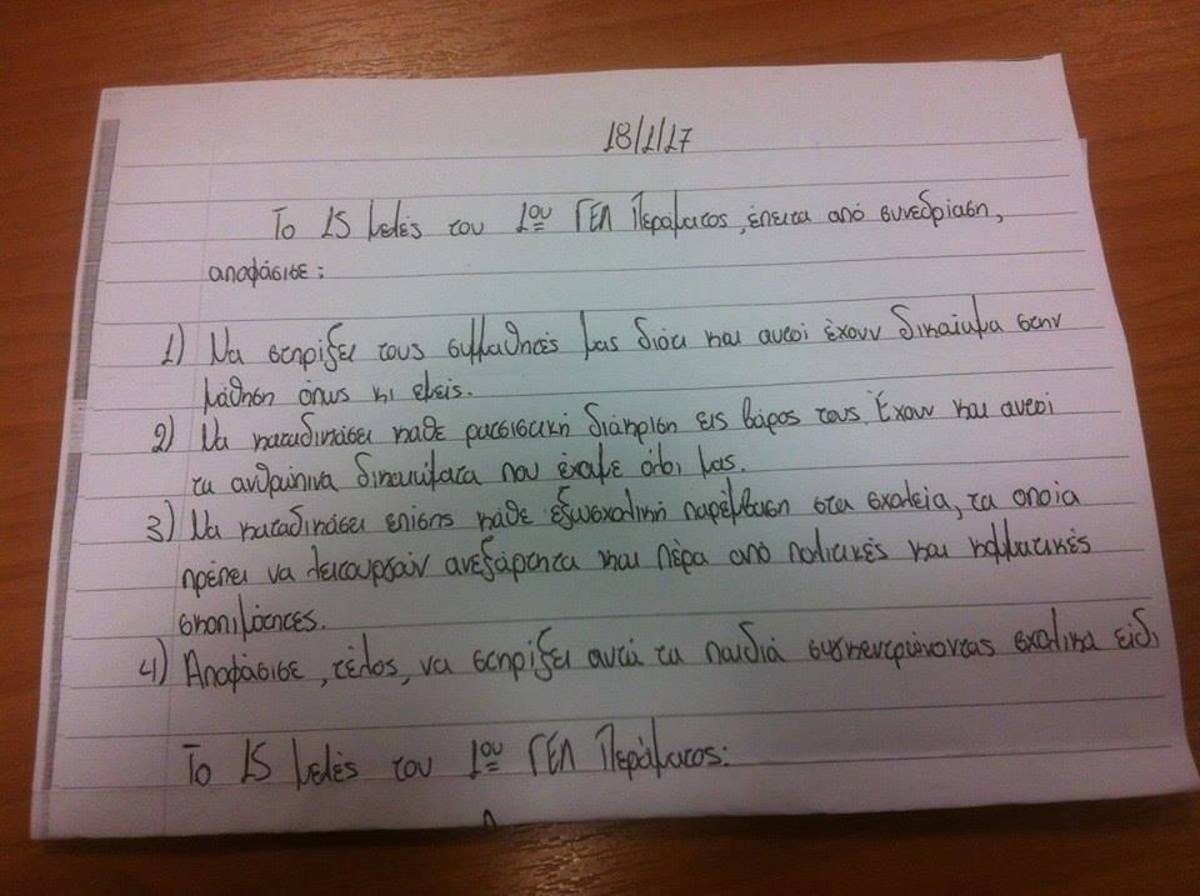 18/1/17
Το 15 μελές του 1ου ΓΕΛ Περάματος, έπειτα από συνεδρίαση,
αποφάσισε:
1) Να στηρίξει τους συμμαθητές μας διότι και αυτοί έχουν δικαίωμα στην
μάθηση όπως κι εμείς.
2) Να καταδικάσει κάθε ρατσιστική διάκριση εις βάρος τους. Έχουν και αυτοί
τα ανθρώπινα δικαιώματα που έχουμε όλοι μας.
3) Να καταδικάσει επίσης κάθε εξωσχολική παρέμβαση στα σχολεία, τα οποία
πρέπει να λειτουργούν ανεξάρτητα και πέρα από πολιτικές και κομματικές
σκοπιμότητες.
4) Αποφάσισε, τέλος, να στηρίξει αυτά τα παιδιά συγκεντρώνοντας σχολικά είδη
Το 15 μελές του 1ου ΓΕΛ Περάματος: